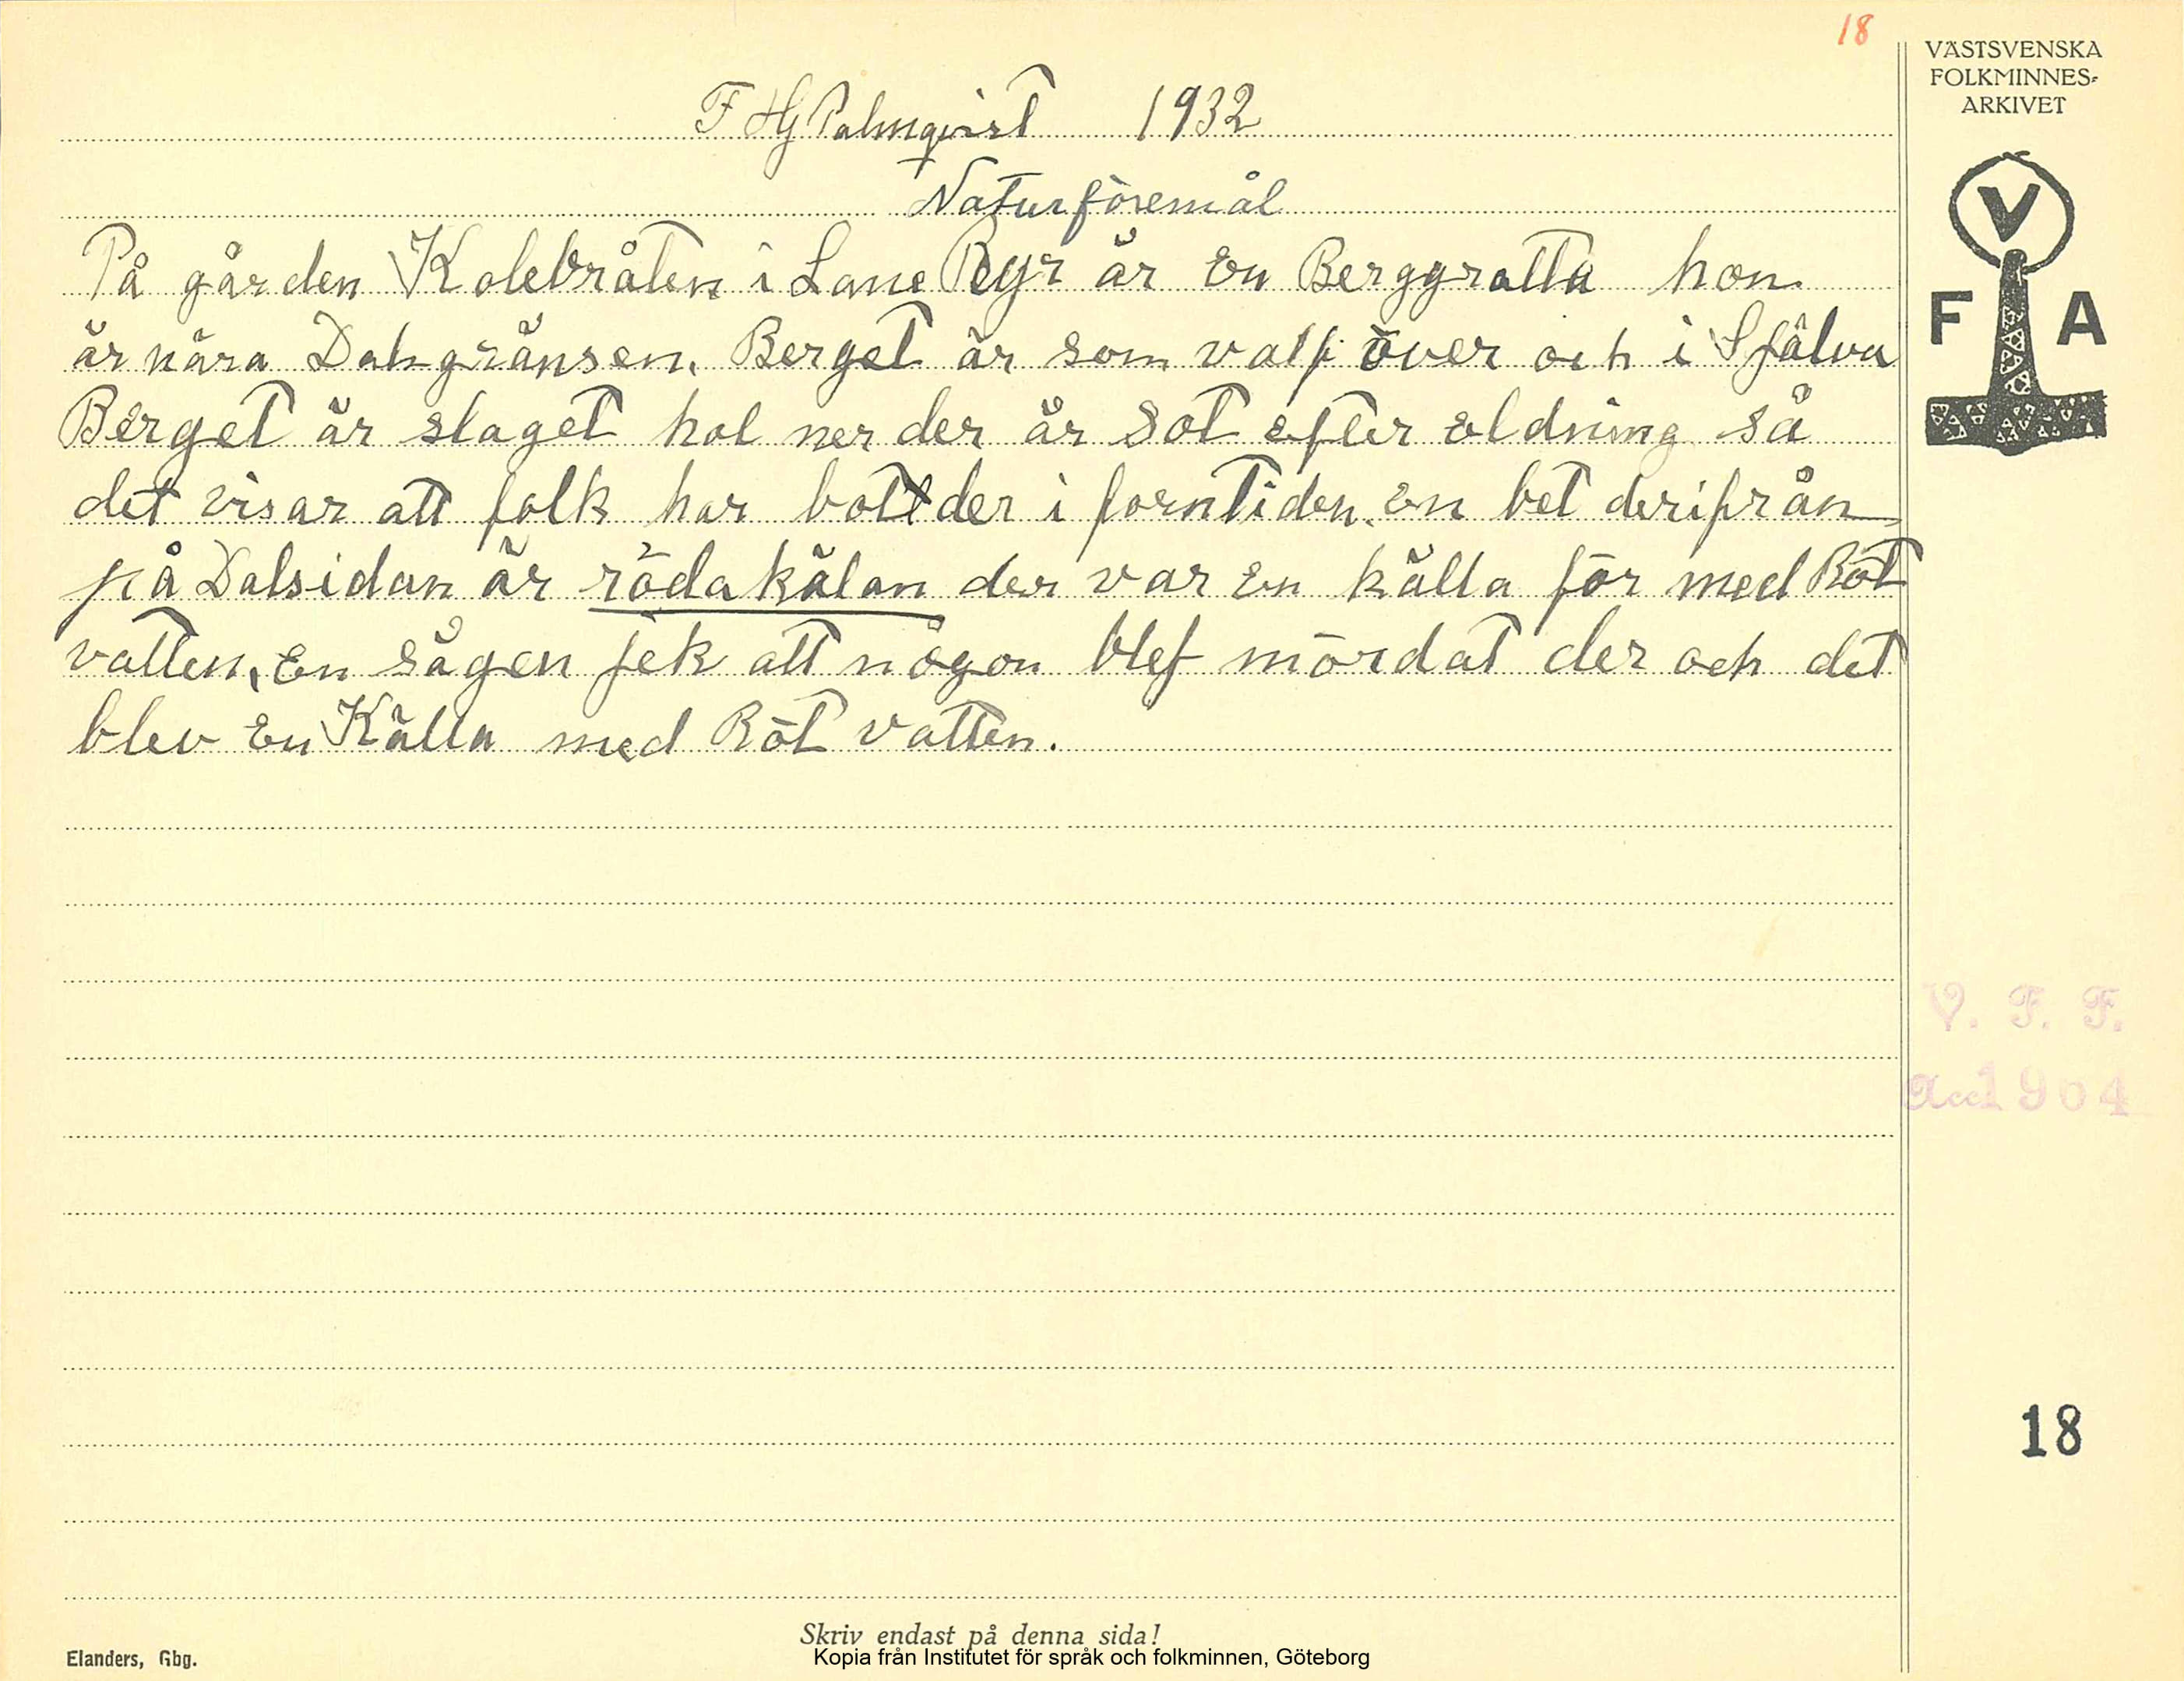 18
VÄSTSVENSKA
FOLKMINNES-
ARKIVET
V
F A
F Hj Palmqvist 1932
Naturföremål
På gården Kolebråten i Lane Ryr är En Berggrotta hon
är nära Dalsgränsen. Berget är som valf över och i Sjålva
Berget är slaget hol ner der är Sot efter Eldning så
det visar att folk har bott der i forntiden. En bet derifrån
på Dalsidan är röda kälan der var En källa för med Röt
vatten, En sägen jek att nogon blef mördat der och det
blev En Källa med Röt vatten.
V. F. F.
Acc1904
18
Skriv endast på denna sida!
Elanders, Gbg.
Kopia från Institutet för språk och folkminnen, Göteborg